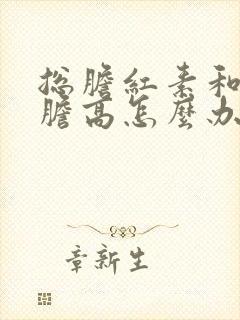 总膽紅素和
膽高怎麼办
章新生